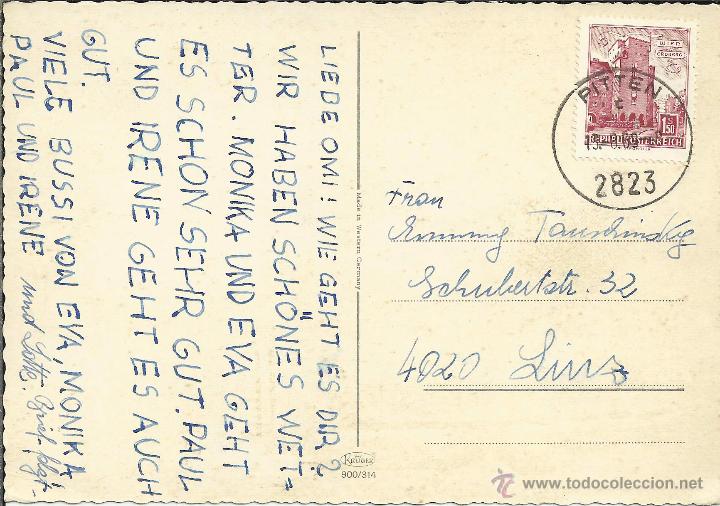 LIEBE OMI! WIE GEHT ES DIR?
WIR HABEN SCHÖNES WET=
TER. MONIKA UND EVA GEHT
ES SCHON SEHR GUT. PAUL
UND IRENE GEHT ES AUCH
GUT.
VIELE BUSSI VON EVA, MONIKA
PAUL UND IRENE und Lotte. Brief folgt.
Made in Western Germany
KRÜGER
900/314
WIEN
REPUBLIK ÖSTERREICH
1.50
PITTEN
2823
Frau
Tauschinsky
Schubertstr. 32
4020 Linz
todocoleccion.net